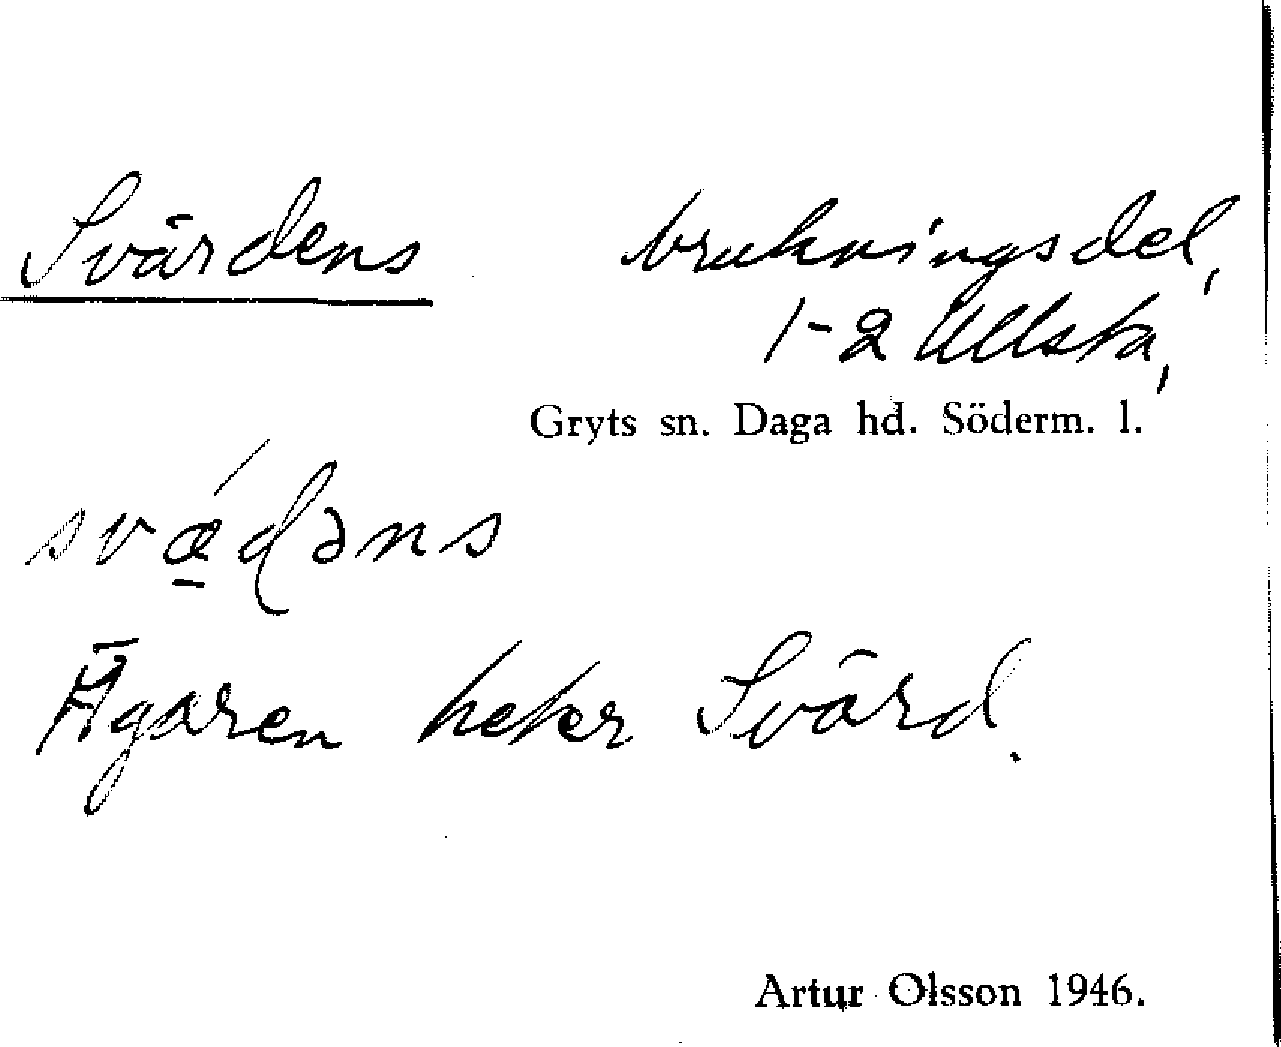 Svärdens brukningsdel,
1-2 Ullsta,
Gryts sn. Daga hd. Söderm. l.
svǽ̱dəns
Ägaren heter Svärd.
Artur Olsson 1946.